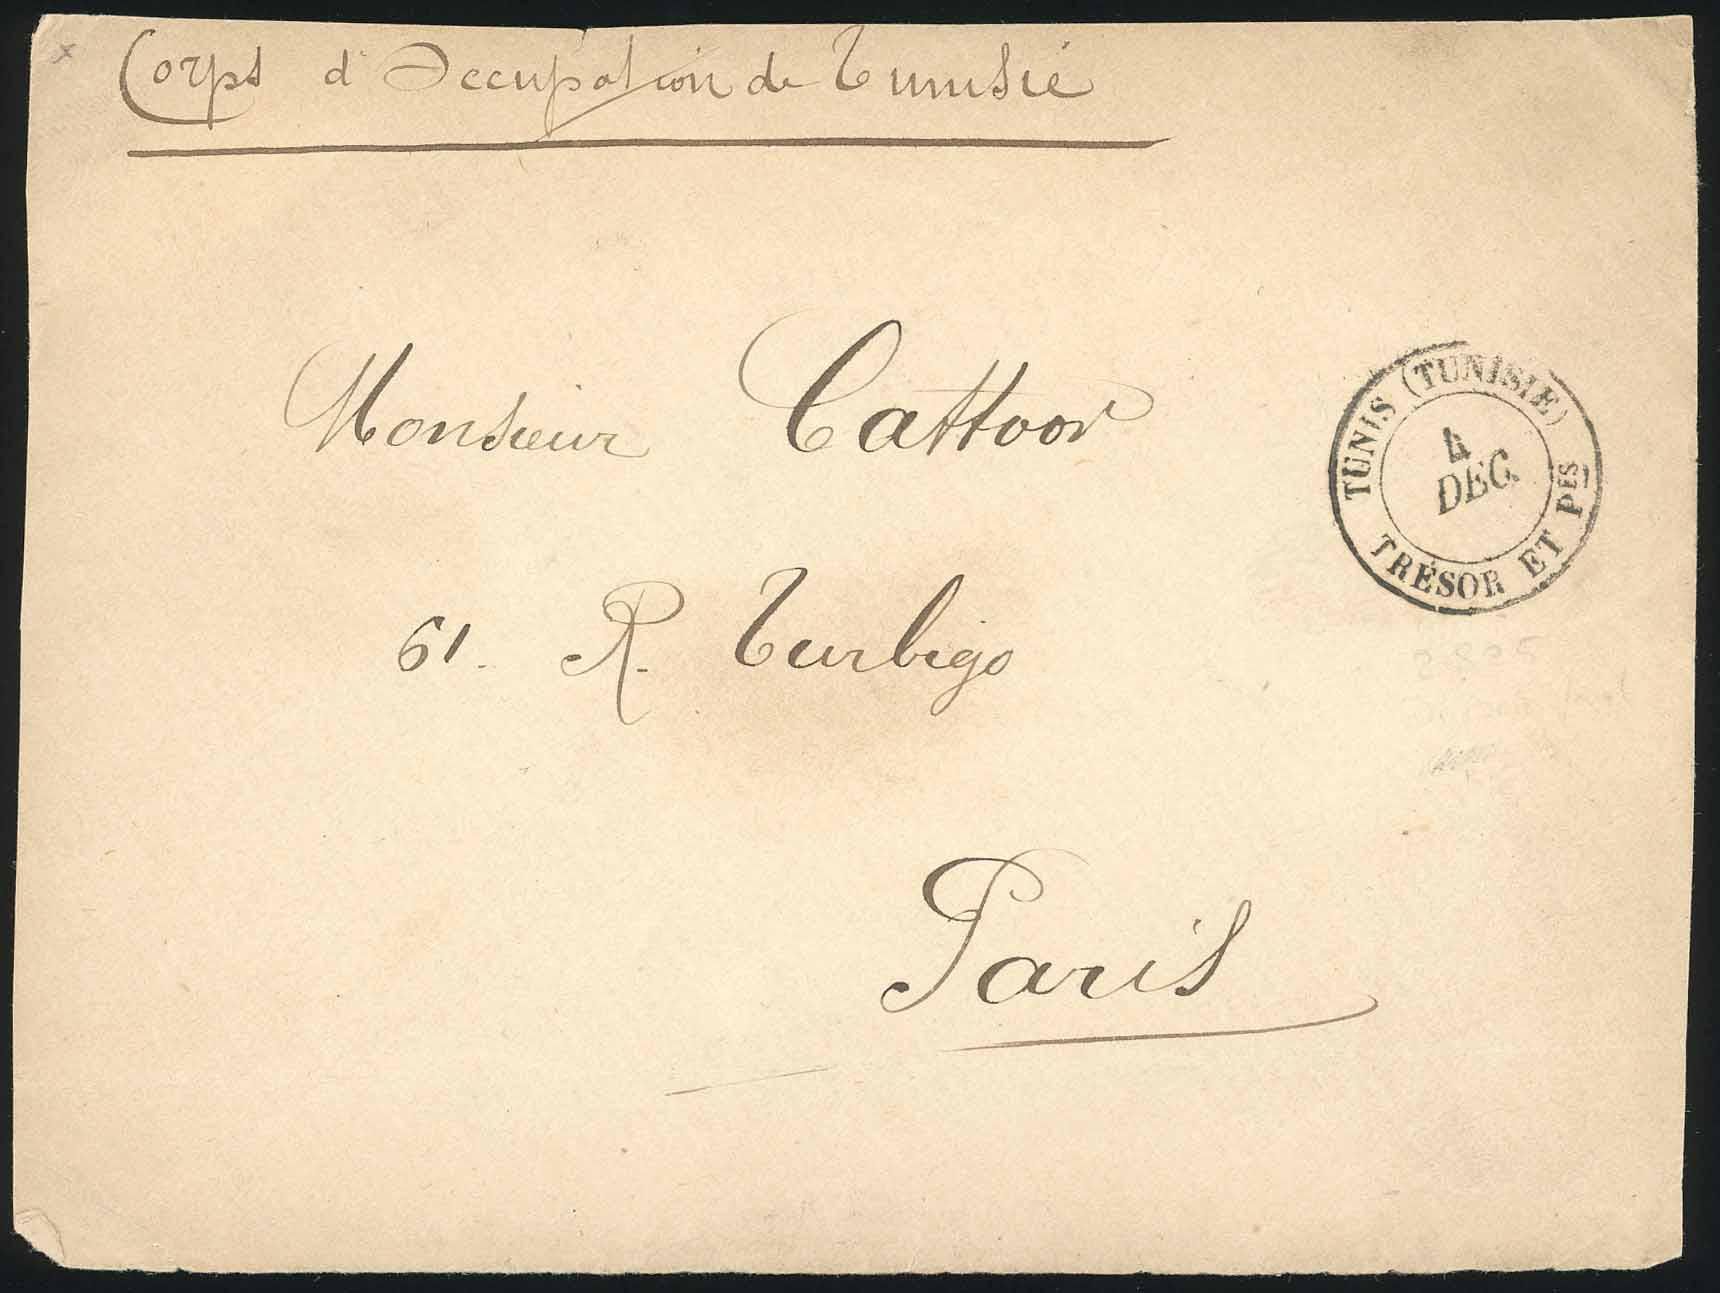 Corps d'Occupation de Tunisie
Monsieur Cattoor
TUNIS (TUNISIE)
4
DEC.
TRÉSOR ET PES
61. R. Turbigo
Paris